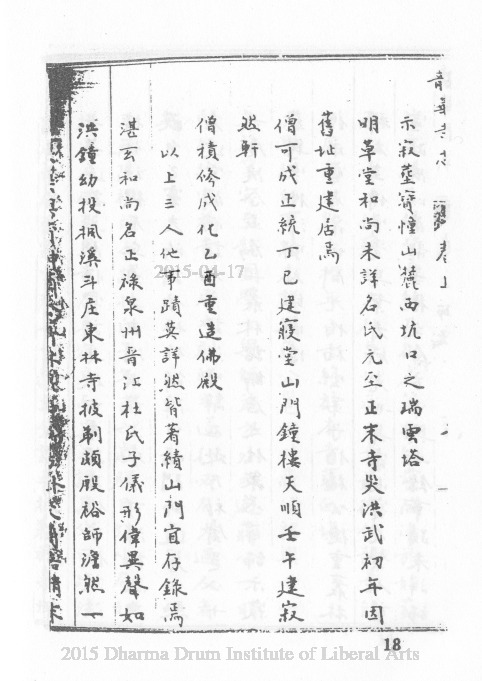 示寂塟寳幢山麓西坑口之瑞雲塔
明草堂和尚未詳名氏元至正末寺災洪武初年因
舊址重建居焉
僧可成正統丁巳建寢堂山門鐘樓天順壬午建寂
然軒
僧積修成化乙酉重造佛殿
以上三人他事蹟莫詳然皆著績山門宜存錄焉
湛玄和尚名正祿泉州晉江杜氏子儀形偉異聲如
洪鐘幼投楓溪斗庄東林寺披剃頗殷裕師澹然一
18
2015-04-17
2015 Dharma Drum Institute of Liberal Arts